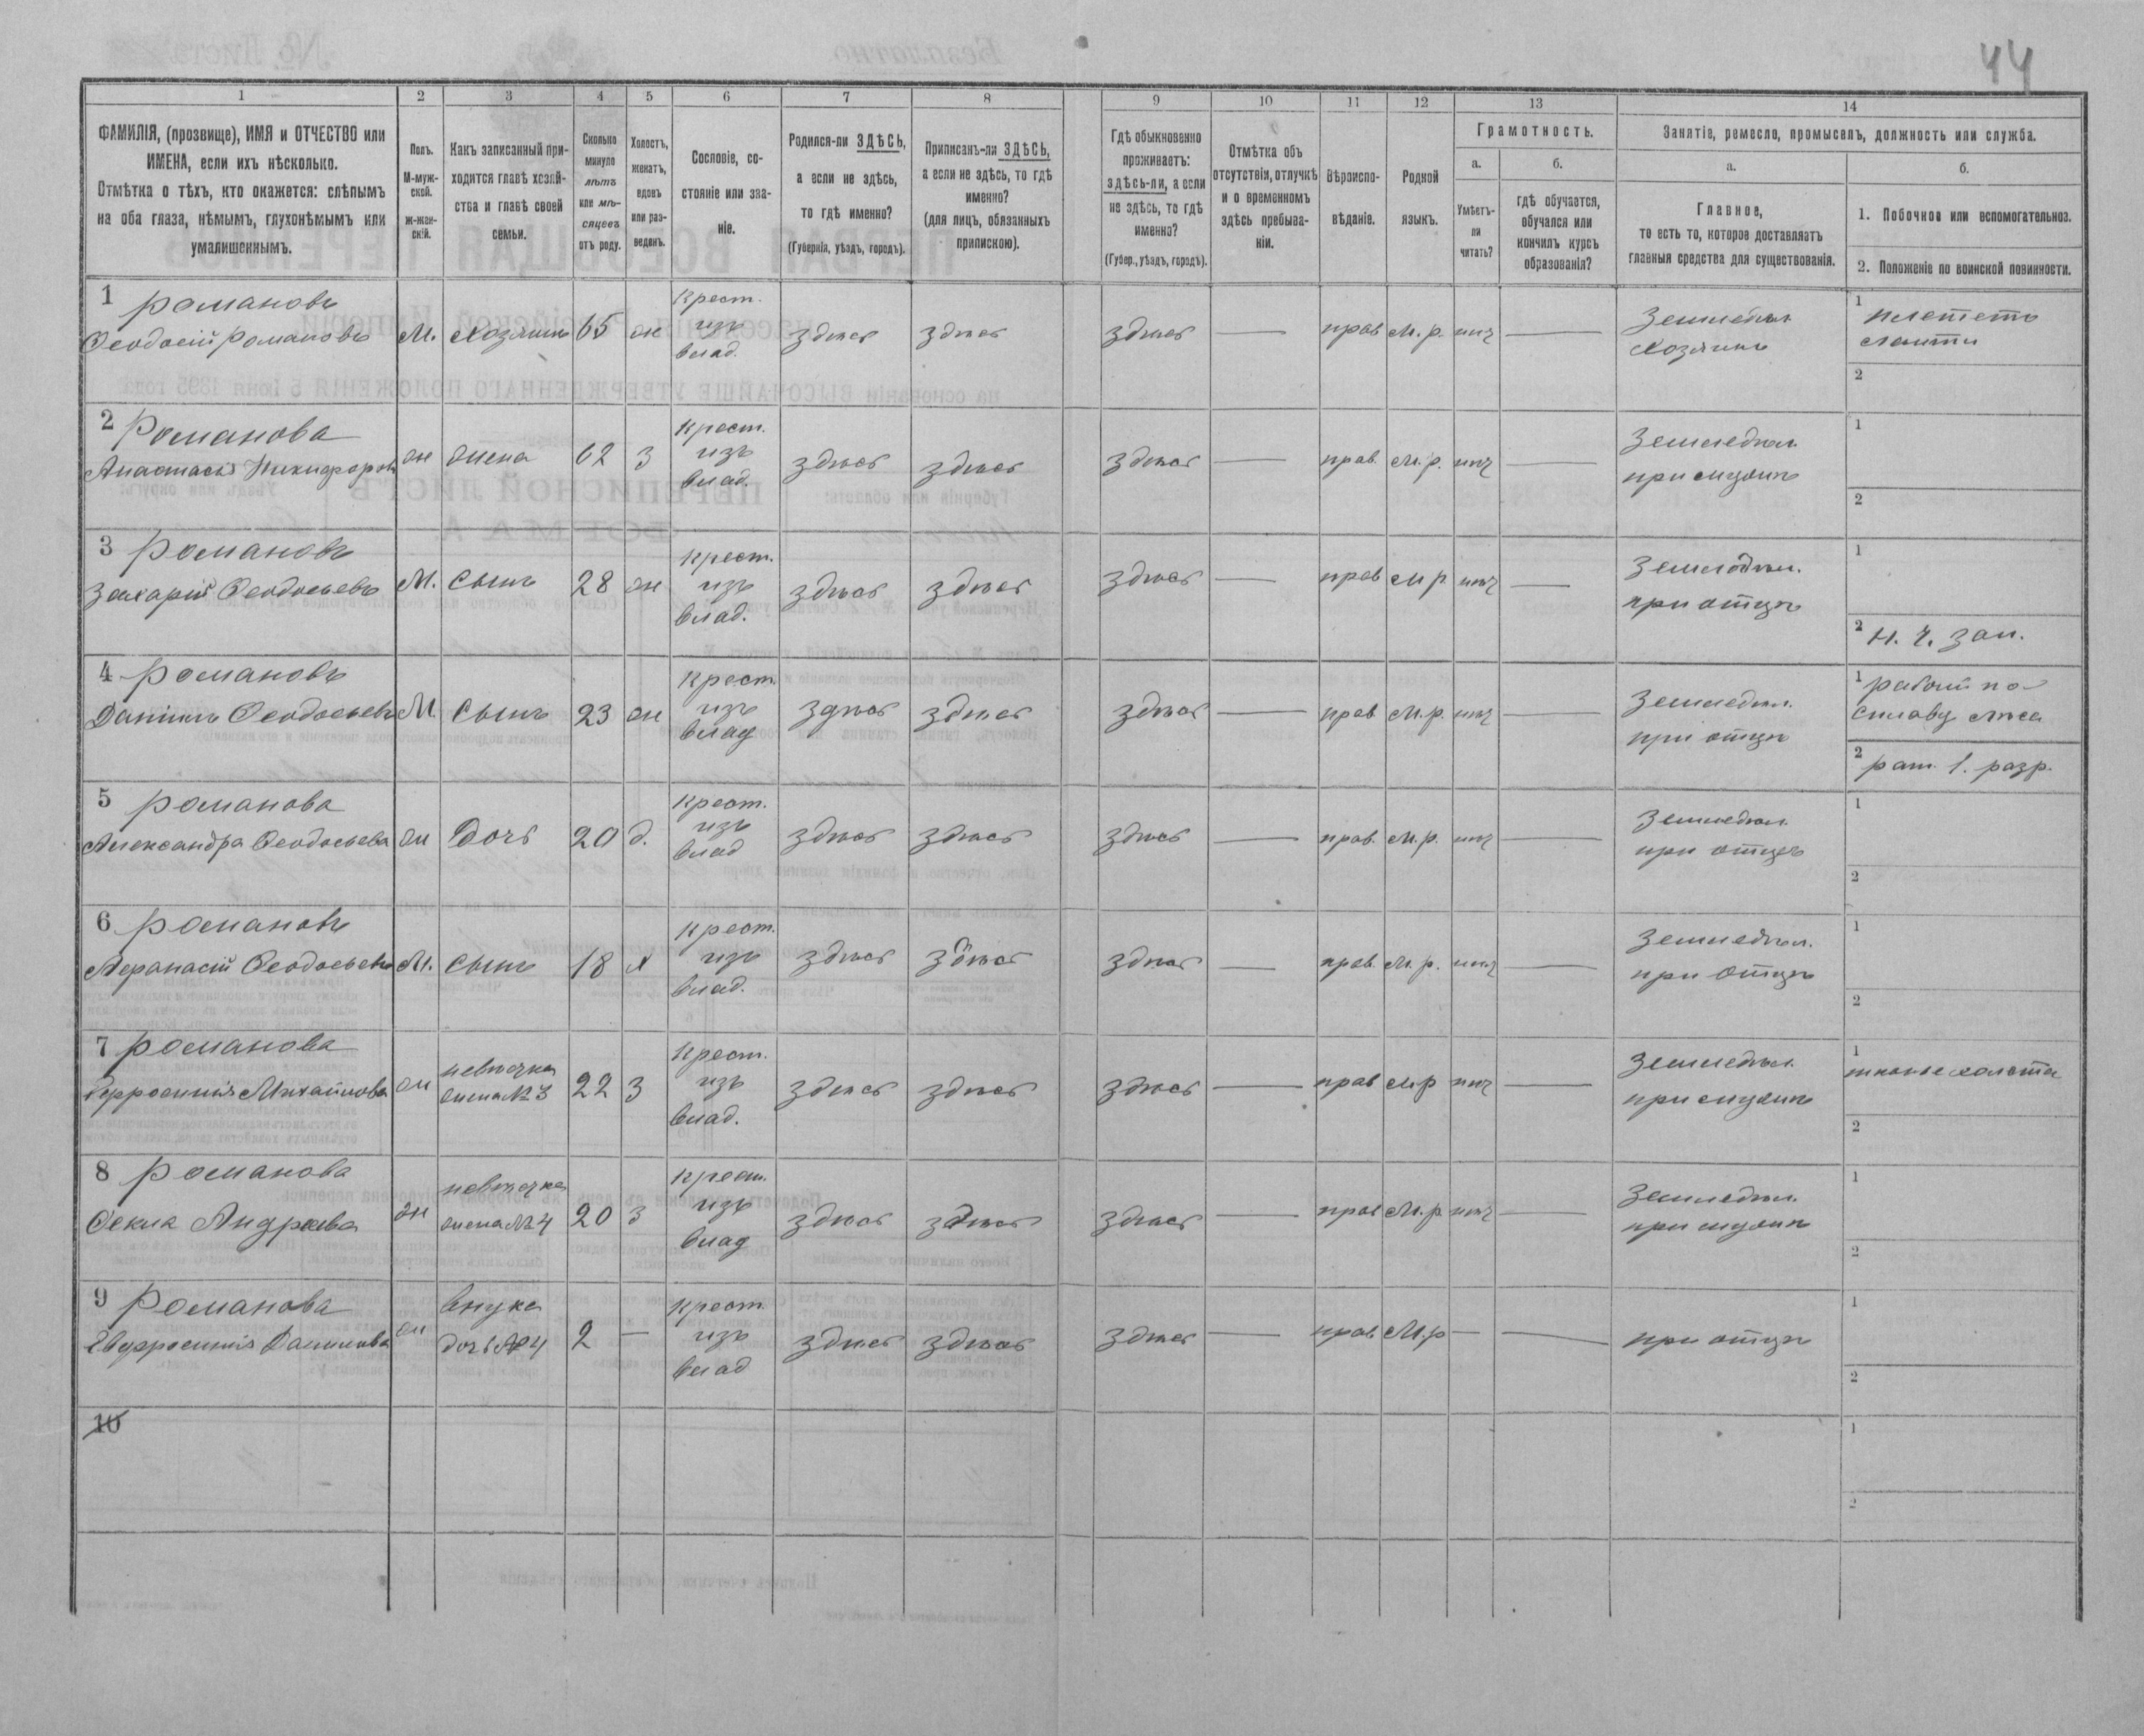 44
1 2 3 4 5 6 7 8 9 10 11 12 13 14
ФАМИЛІЯ, (прозвище), ИМЯ и ОТЧЕСТВО или
ИМЕНА, если ихъ нѣсколько.
Отмѣтка о тѣхъ, кто окажется: слѣпымъ
на оба глаза, нѣмымъ, глухонѣмымъ или
умалишеннымъ.
Полъ.
М-муж-
ской.
ж-жен-
скій.
Какъ записанный при-
ходится главѣ хозяй-
ства и главѣ своей
семьи.
Сколько
минуло
лѣтъ
или мѣ-
сяцевъ
отъ роду.
Холостъ,
женатъ,
вдовъ
или раз-
веденъ.
Сословіе, со-
стояніе или зва-
ніе.
Родился-ли ЗДѢСЬ,
а если не здѣсь,
то гдѣ именно?
(Губернія, уѣздъ, городъ).
Приписанъ-ли ЗДѢСЬ,
а если не здѣсь, то гдѣ
именно?
(для лицъ, обязанныхъ
припискою).
Гдѣ обыкновенно
проживаетъ:
здѣсь-ли, а если
не здѣсь, то гдѣ
именно?
(Губер., уѣздъ, городъ).
Отмѣтка объ
отсутствіи, отлучкѣ
и о временномъ
здѣсь пребыва-
ніи.
Вѣроиспо-
вѣданіе.
Родной
языкъ.
Грамотность.
а.
Умѣетъ-
ли
читать?
б.
гдѣ обучается,
обучался или
кончилъ курсъ
образованія?
Занятіе, ремесло, промыселъ, должность или служба.
а.
Главное,
то есть то, которое доставляетъ
главныя средства для существованія.
б.
1. Побочное или вспомогательное.
2. Положеніе по воинской повинности.
1 Романовъ
Ѳеодосій Романовъ М. хозяинъ 65 ж Крест. изъ влад. здѣсь здѣсь здѣсь — прав М. р. нѣт —
Земледѣл.
хозяинъ
1 плететъ
лапти
2
2 Романова
Анастасія Никифоров ж жена 62 З Крест. изъ влад. здѣсь здѣсь здѣсь — прав. М. р. нѣт —
Земледѣл.
при мужѣ
1
2
3 Романовъ
Захарій Ѳеодосьевъ М. сынъ 28 ж Крест. изъ влад. здѣсь здѣсь здѣсь — прав М р нѣт —
Земледѣл.
при отцѣ
1
2 Н. Ч. зап.
4 Романовъ
Даніилъ Ѳеодосьевъ М. сынъ 23 ж Крест. изъ влад здѣсь здѣсь здѣсь — прав М. р. нѣт —
Земледѣл.
при отцѣ
1 рабочій по
сплаву лѣса
2 рат. 1. разр.
5 Романова
Александра Ѳеодосьева ж дочь 20 д. Крест. изъ влад здѣсь здѣсь здѣсь — прав. М. р. нѣт —
Земледѣл.
при отцѣ
1
2
6 Романовъ
Аѳанасій Ѳеодосьевъ М. сынъ 18 х Крест. изъ влад. здѣсь здѣсь здѣсь — прав. М. р. нѣт —
Земледѣл.
при отцѣ
1
2
7 Романова
Михайлова ж невѣстка жена №3 22 З Крест. изъ влад. здѣсь здѣсь здѣсь — прав М. р нѣт —
Земледѣл.
при мужѣ
1 тканье холста
2
8 Романова
Ѳекла Андреева ж невѣстка жена №4 20 З Крест. изъ влад здѣсь здѣсь здѣсь — прав М. р нѣт —
Земледѣл.
при мужѣ
1
2
9 Романова
Евфросинія Данилова ж внука дочь №4 2 — Крест. изъ влад здѣсь здѣсь здѣсь — прав. М. р — —
при отцѣ
1
2
10
1
2